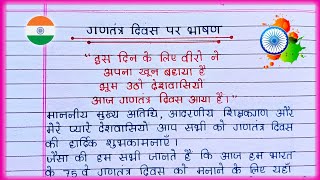 गणतंत्र दिवस पर भाषण
"इस दिन के लिए वीरो ने
अपना खून बहाया है
झूम उठो देशवासियों
आज गणतंत्र दिवस आया है।"
माननीय मुख्य अतिथि, आदरणीय शिक्षकगण और
मेरे प्यारे देशवासियों आप सभी को गणतंत्र दिवस
की हार्दिक शुभकामनाएँ।
जैसा की हम सभी जानते हैं कि आज हम भारत
के 75 वें गणतंत्र दिवस को मनाने के लिए यहाँ